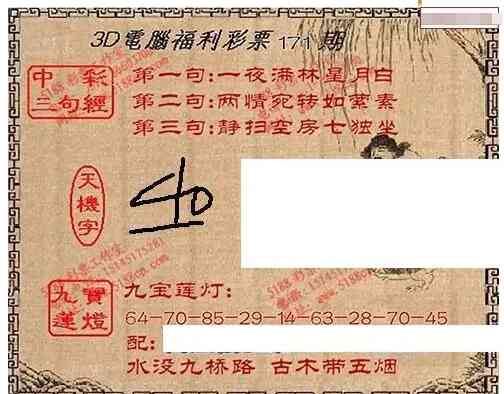 3D電腦福利彩票171期
中彩
三句經
第一句:一夜满林星月白
第二句:两情宛转如萦素
第三句:静扫空房七独坐
天機字
九寶
蓮燈
九宝莲灯:
64-70-85-29-14-63-28-70-45
配:
水没九桥路 古木带五烟